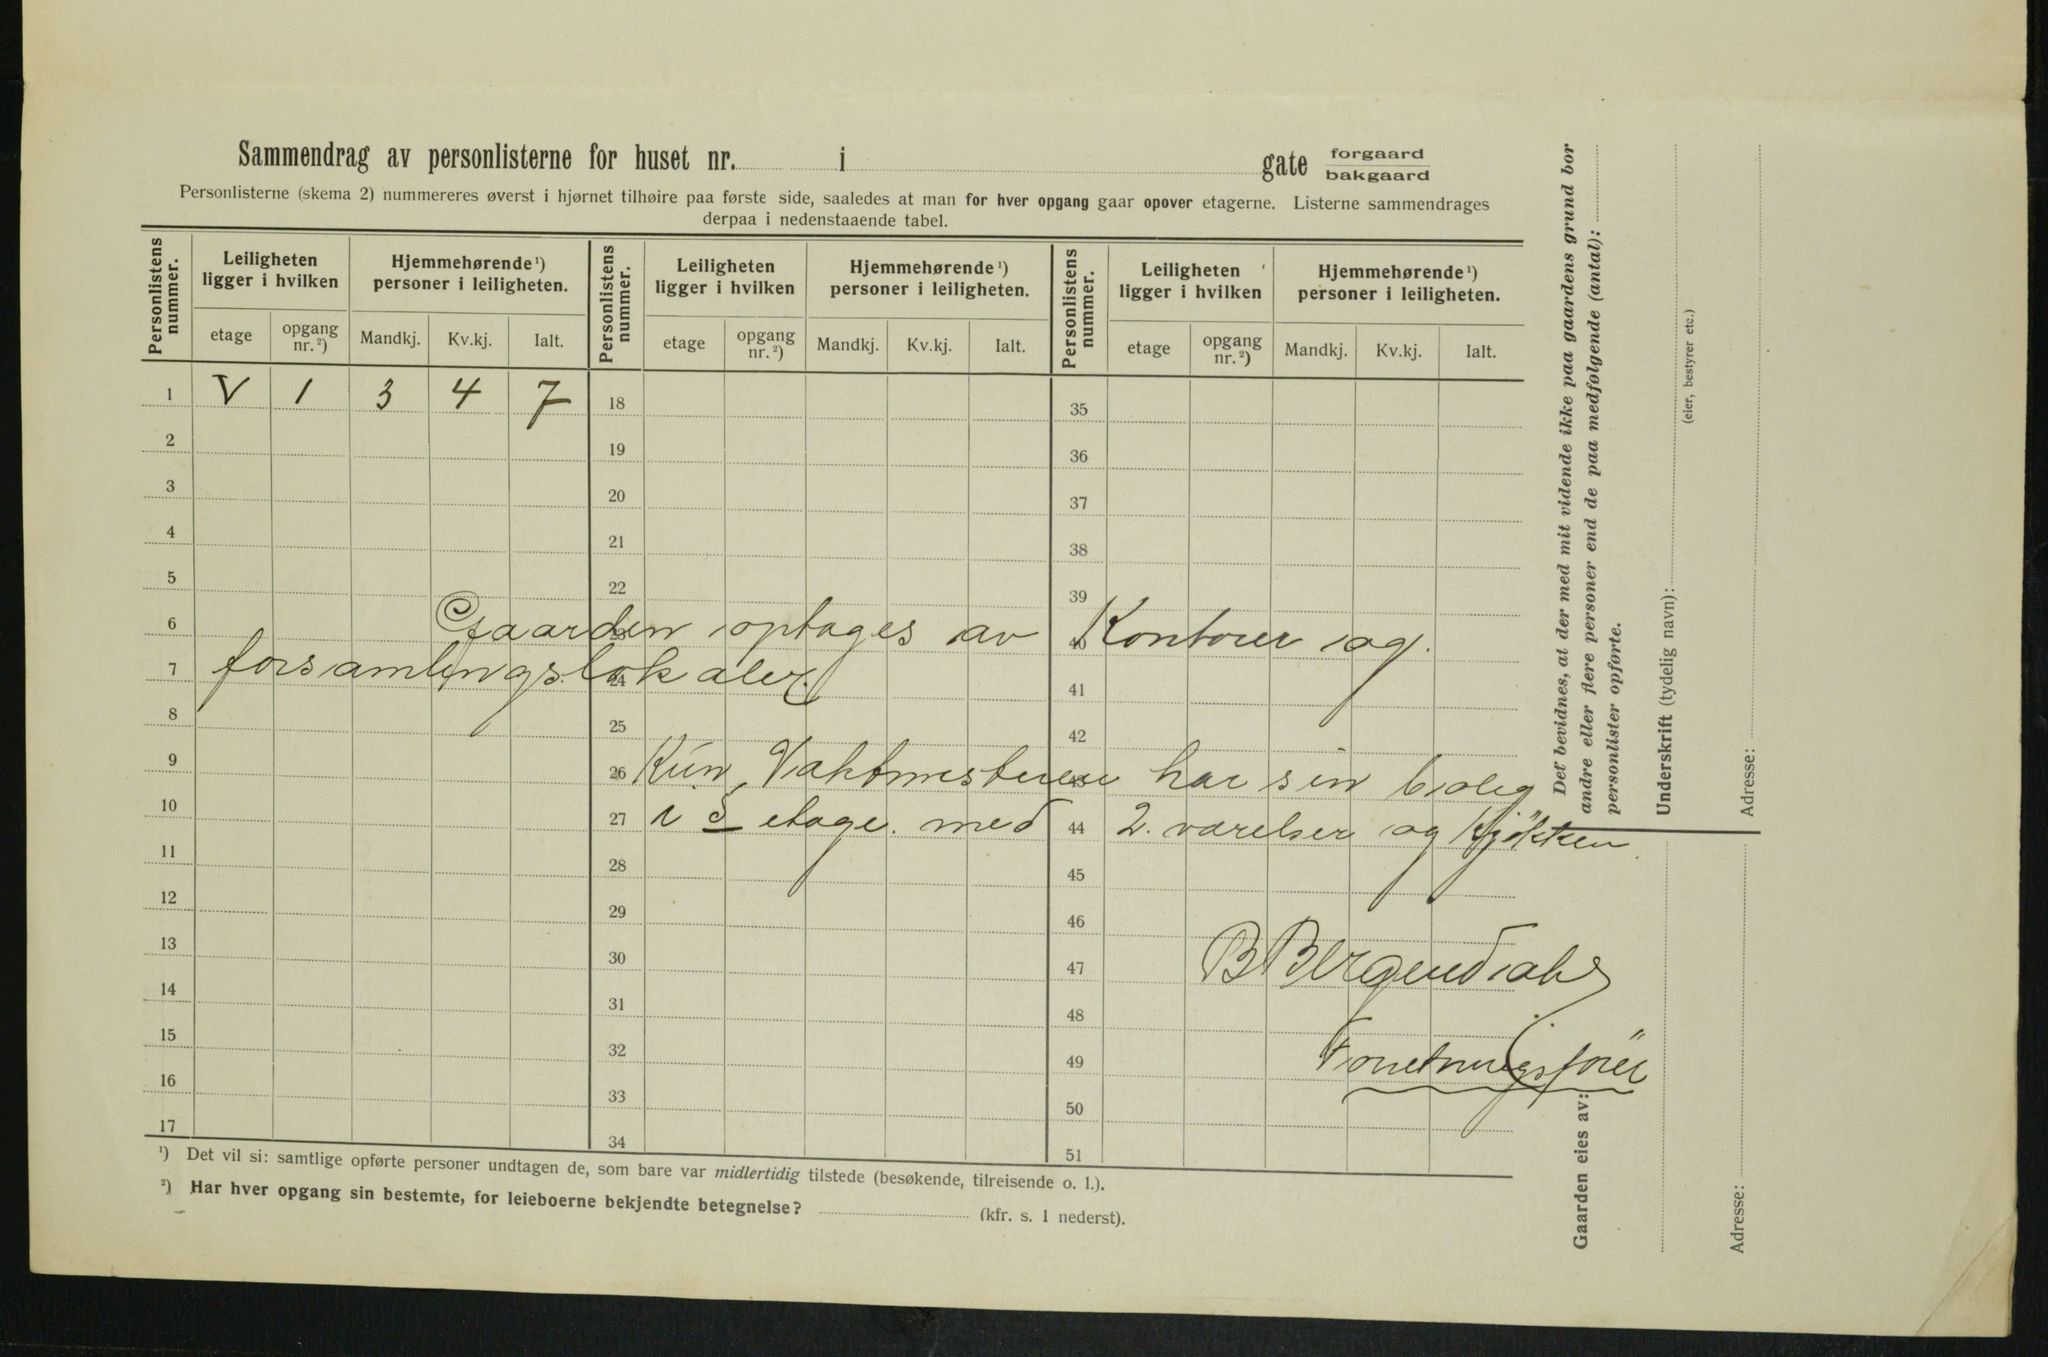 Sammendrag av personlisterne for huset nr. i gate forgaard bakgaard
Personlisterne (skema 2) nummereres øverst i hjørnet tilhøire paa første side, saaledes at man for hver opgang gaar opover etagerne. Listerne sammendrages
derpaa i nedenstaaende tabel.
Personlistens nummer. Leiligheten ligger i hvilken Hjemmehørende ¹) personer i leiligheten. Personlistens nummer. Leiligheten ligger i hvilken Hjemmehørende ¹) personer i leiligheten. Personlistens nummer. Leiligheten ligger i hvilken Hjemmehørende ¹) personer i leiligheten.
etage opgang nr. ²) Mandkj. Kv.kj. Ialt. etage opgang nr. ²) Mandkj. Kv.kj. Ialt. etage opgang nr. ²) Mandkj. Kv.kj. Ialt.
1 V 1 3 4 7 18 35
2 19 36
3 20 37
4 21 38
5 22 39
6 Gaarden 23 optages av 40 Kontorer og
7 forsamlingslokaler. 24 41
8 25 42
9 26 Kun Vaktmesteren 43 har sin bolig
10 27 i 5 etage. med 44 2. værelser og Kjøkken
11 28 45
12 29 46
13 30 47 B Bergendahl
14 31 48
15 32 49 Forretningsförer
16 33 50
17 34 51
¹) Det vil si: samtlige opførte personer undtagen de, som bare var midlertidig tilstede (besøkende, tilreisende o. l.).
²) Har hver opgang sin bestemte, for leieboerne bekjendte betegnelse? (kfr. s. 1 nederst).
Det bevidnes, at der med mit vidende ikke paa gaardens grund bor
andre eller flere personer end de paa medfølgende (antal):
personlister opførte.
Underskrift (tydelig navn):
(eier, bestyrer etc.)
Adresse:
Gaarden eies av:
Adresse: